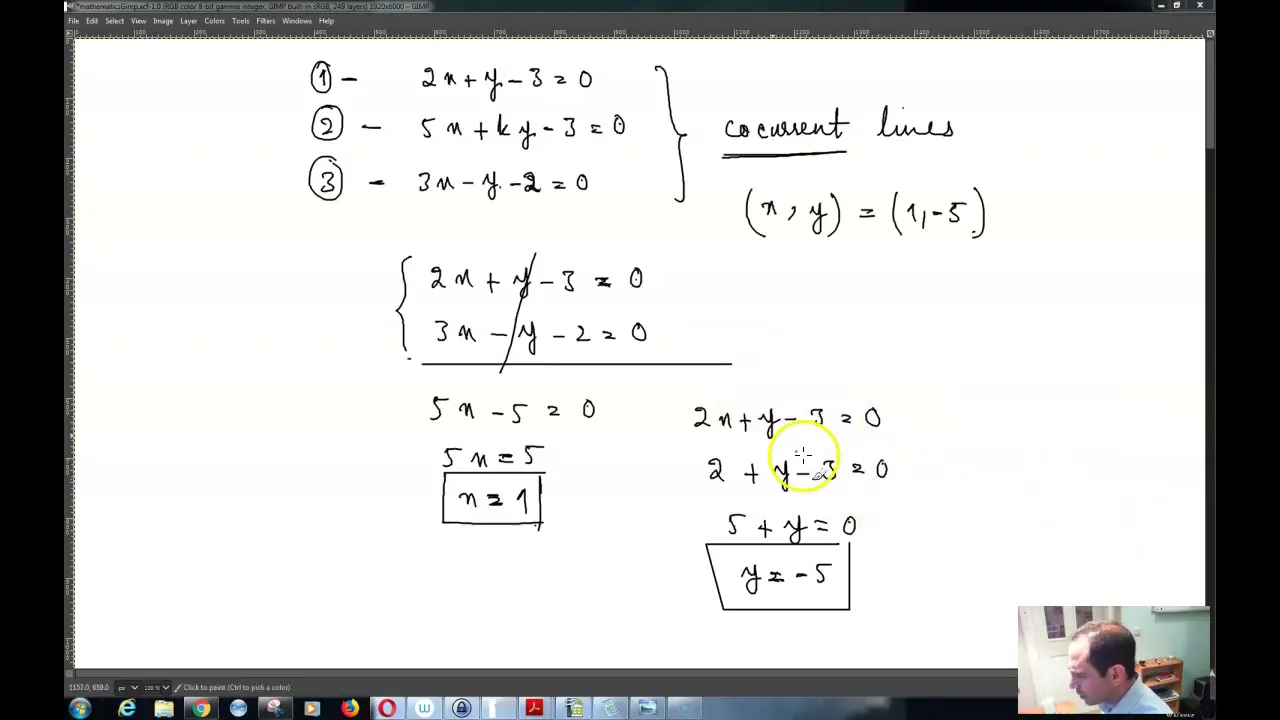 *mathematicsGimp.xcf-1.0 (RGB color 8-bit gamma integer, GIMP built-in sRGB, 249 layers) 1920x6000 – GIMP
File Edit Select View Image Layer Colors Tools Filters Windows Help
① - 2x + y - 3 = 0
② - 5x + ky - 3 = 0
③ - 3x - y - 2 = 0
cocurrent lines
(x, y) = (1, -5)
2x + y - 3 = 0
3x - y - 2 = 0
5x - 5 = 0
5x = 5
x = 1
2x + y - 3 = 0
2 + y - 3 = 0
5 + y = 0
y = -5
1157.0, 659.0 px 100 % Click to paint (Ctrl to pick a color)